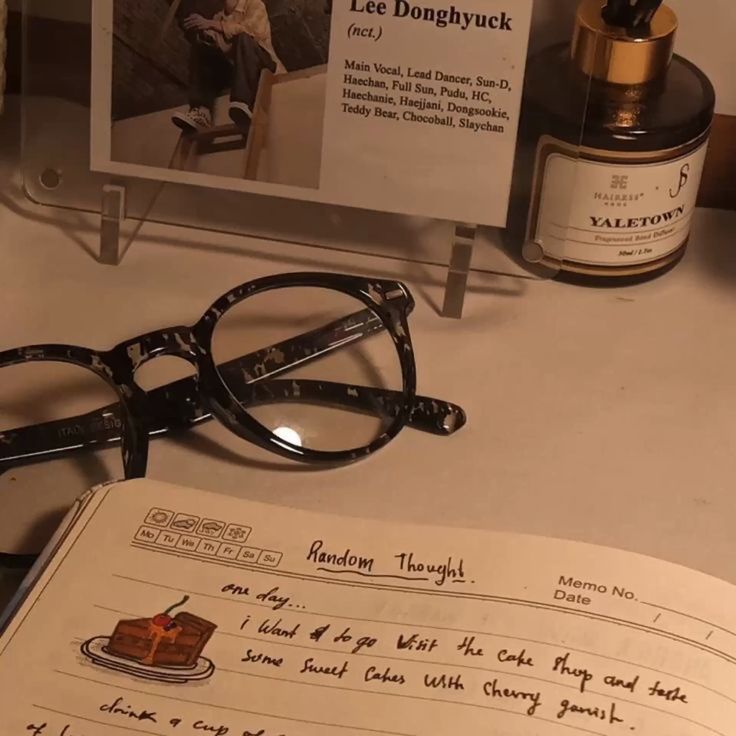 Lee Donghyuck
(nct.)
Main Vocal, Lead Dancer, Sun-D,
Haechan, Full Sun, Pudu, HC,
Haechanie, Haejjani, Dongsookie,
Teddy Bear, Chocoball, Slaychan
HAIRESS
YALETOWN
Fragranced Reed Diffuser
50ml / 1.7oz
Mo Tu We Th Fr Sa Su
Random Thought.
Memo No.
Date / /
one day...
i want to go visit the cake shop and taste
some sweet cakes with cherry garnish.
drink a cup of
of